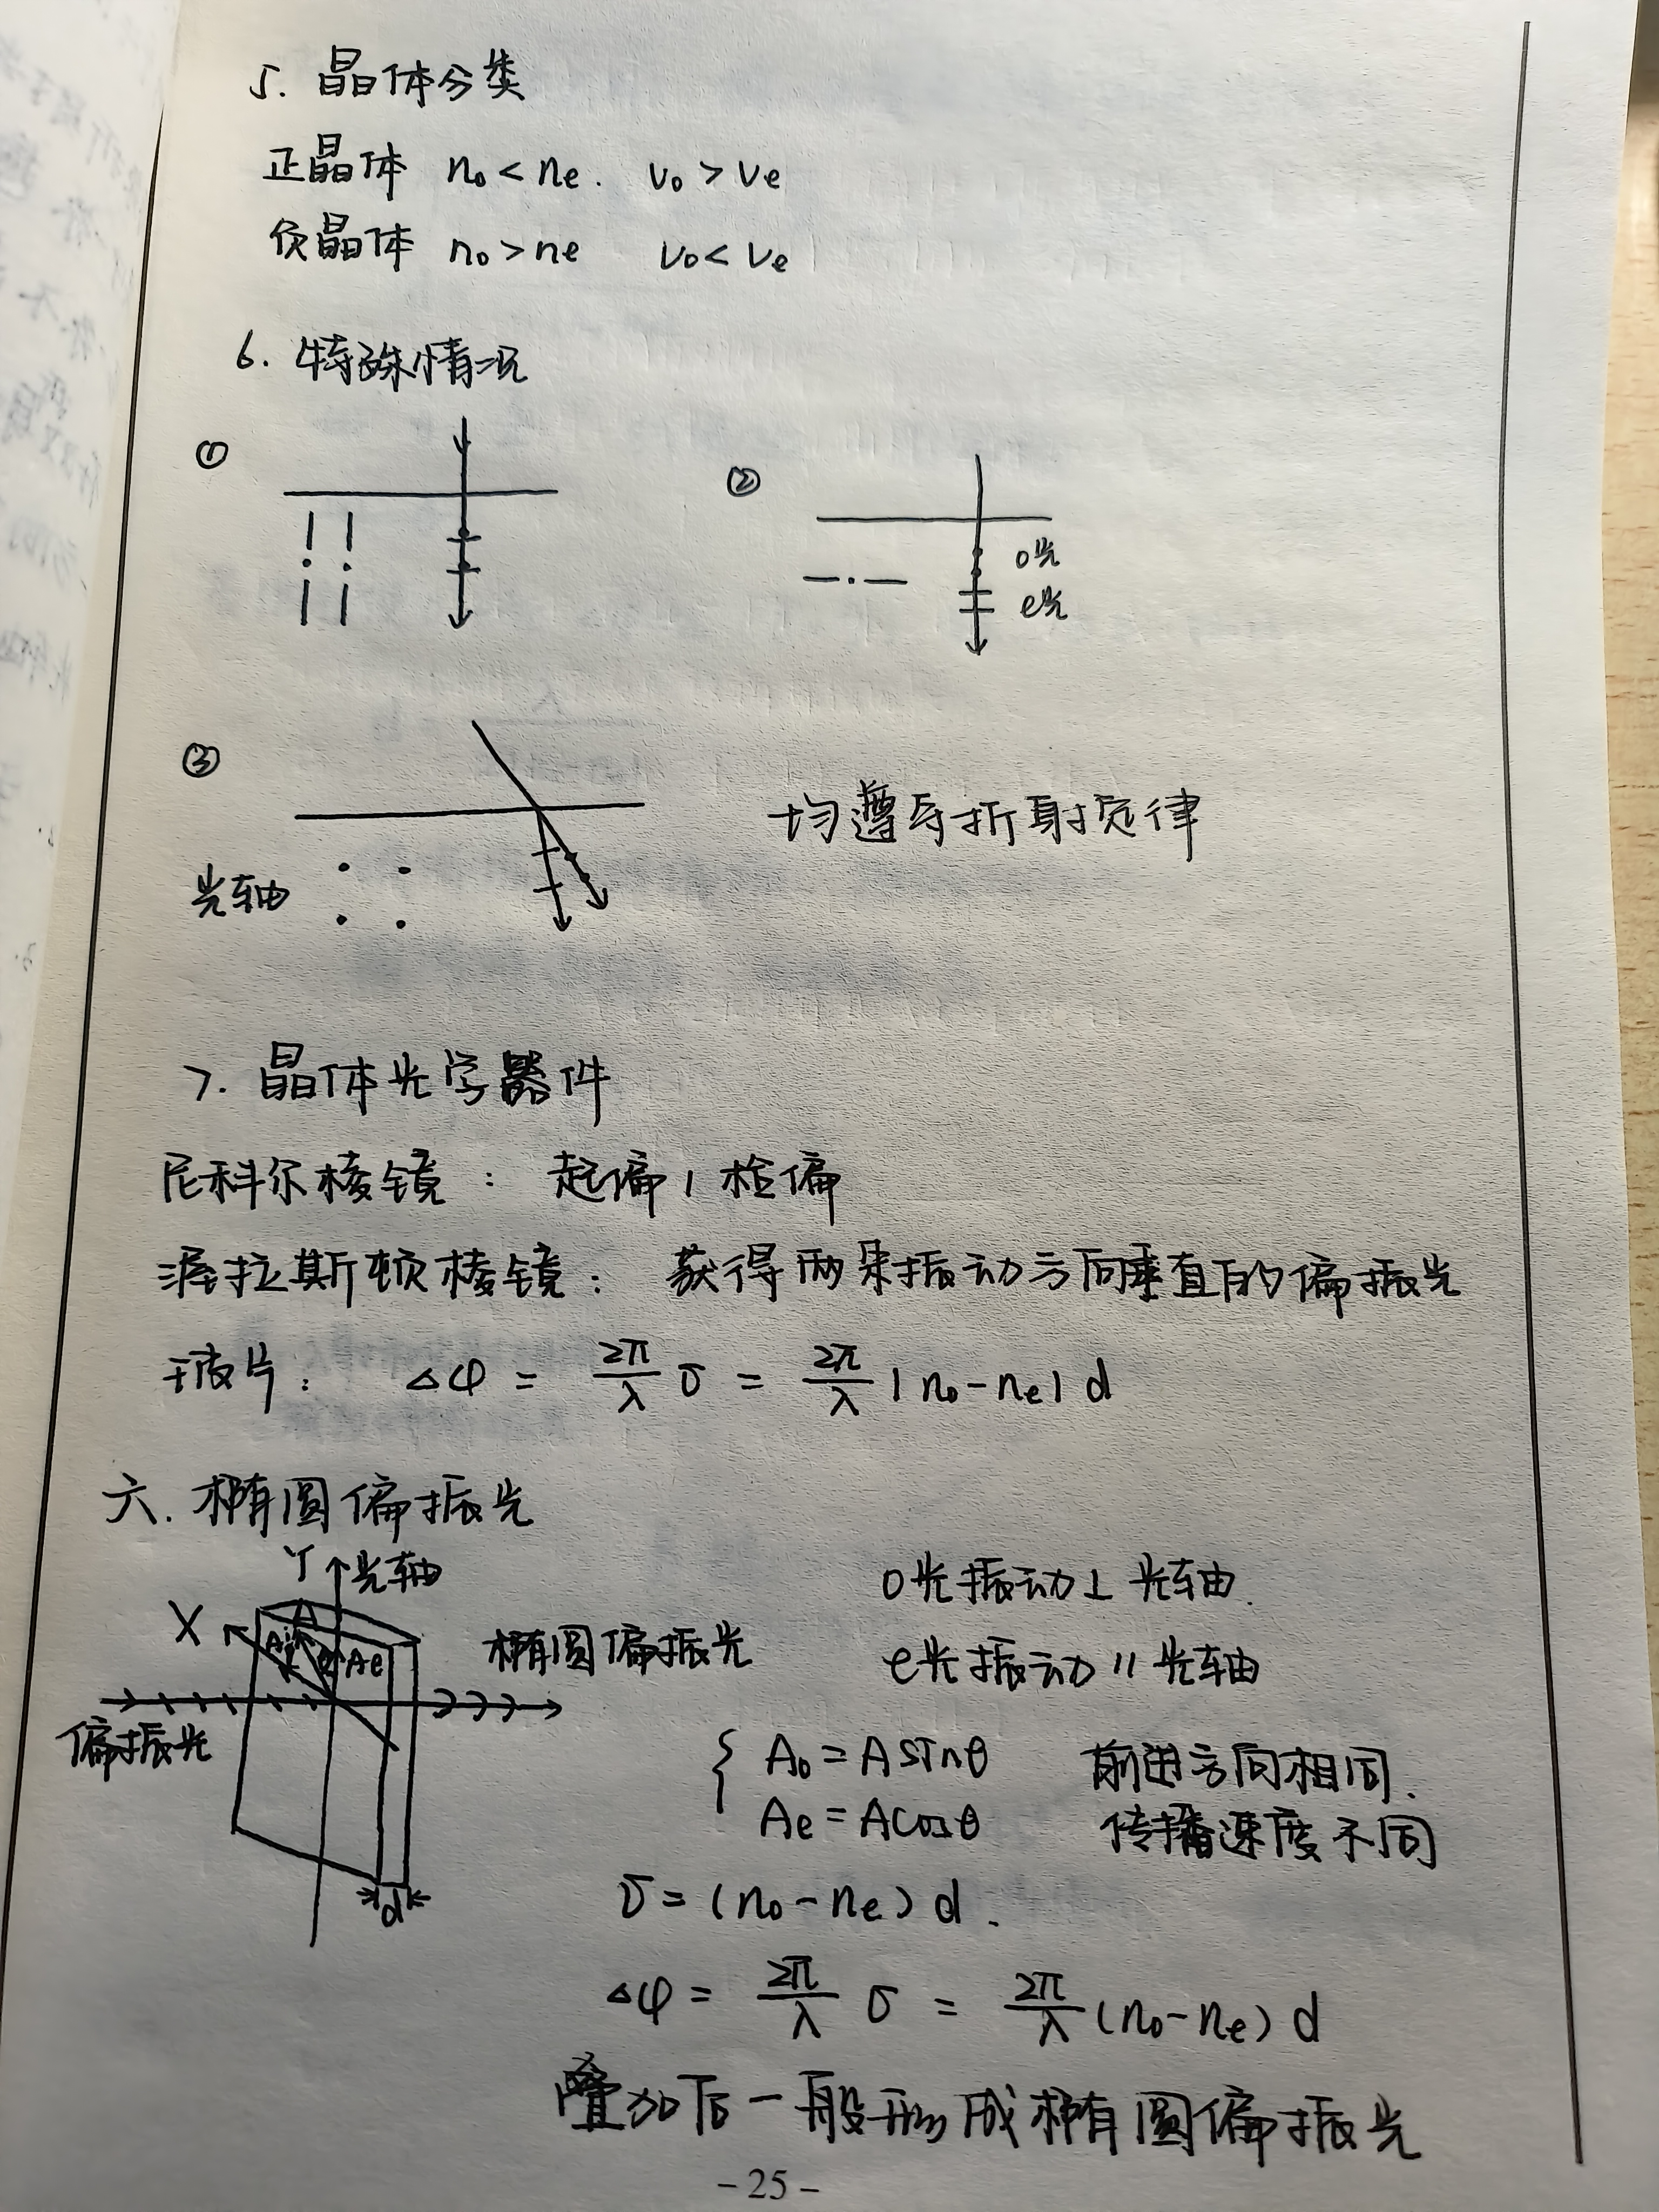 5. 晶体分类
正晶体 n₀ < nₑ. v₀ > vₑ
负晶体 n₀ > nₑ v₀ < vₑ
6. 特殊情况
① ②
o光
e光
③
均遵守折射定律
光轴
7. 晶体光学器件
尼科尔棱镜: 起偏, 检偏
渥拉斯顿棱镜: 获得两束振动方向垂直的偏振光
波片: Δφ = 2π/λ δ = 2π/λ |n₀-nₑ| d
六. 椭圆偏振光
Y 光轴
X
A
A₀ θ Aₑ
椭圆偏振光
偏振光
d
o光振动⊥光轴.
e光振动 // 光轴
{ A₀ = Asinθ 前进方向相同.
Aₑ = Acosθ 传播速度不同
δ = (n₀-nₑ) d.
Δφ = 2π/λ δ = 2π/λ (n₀-nₑ) d
叠加后一般形成椭圆偏振光
- 25 -